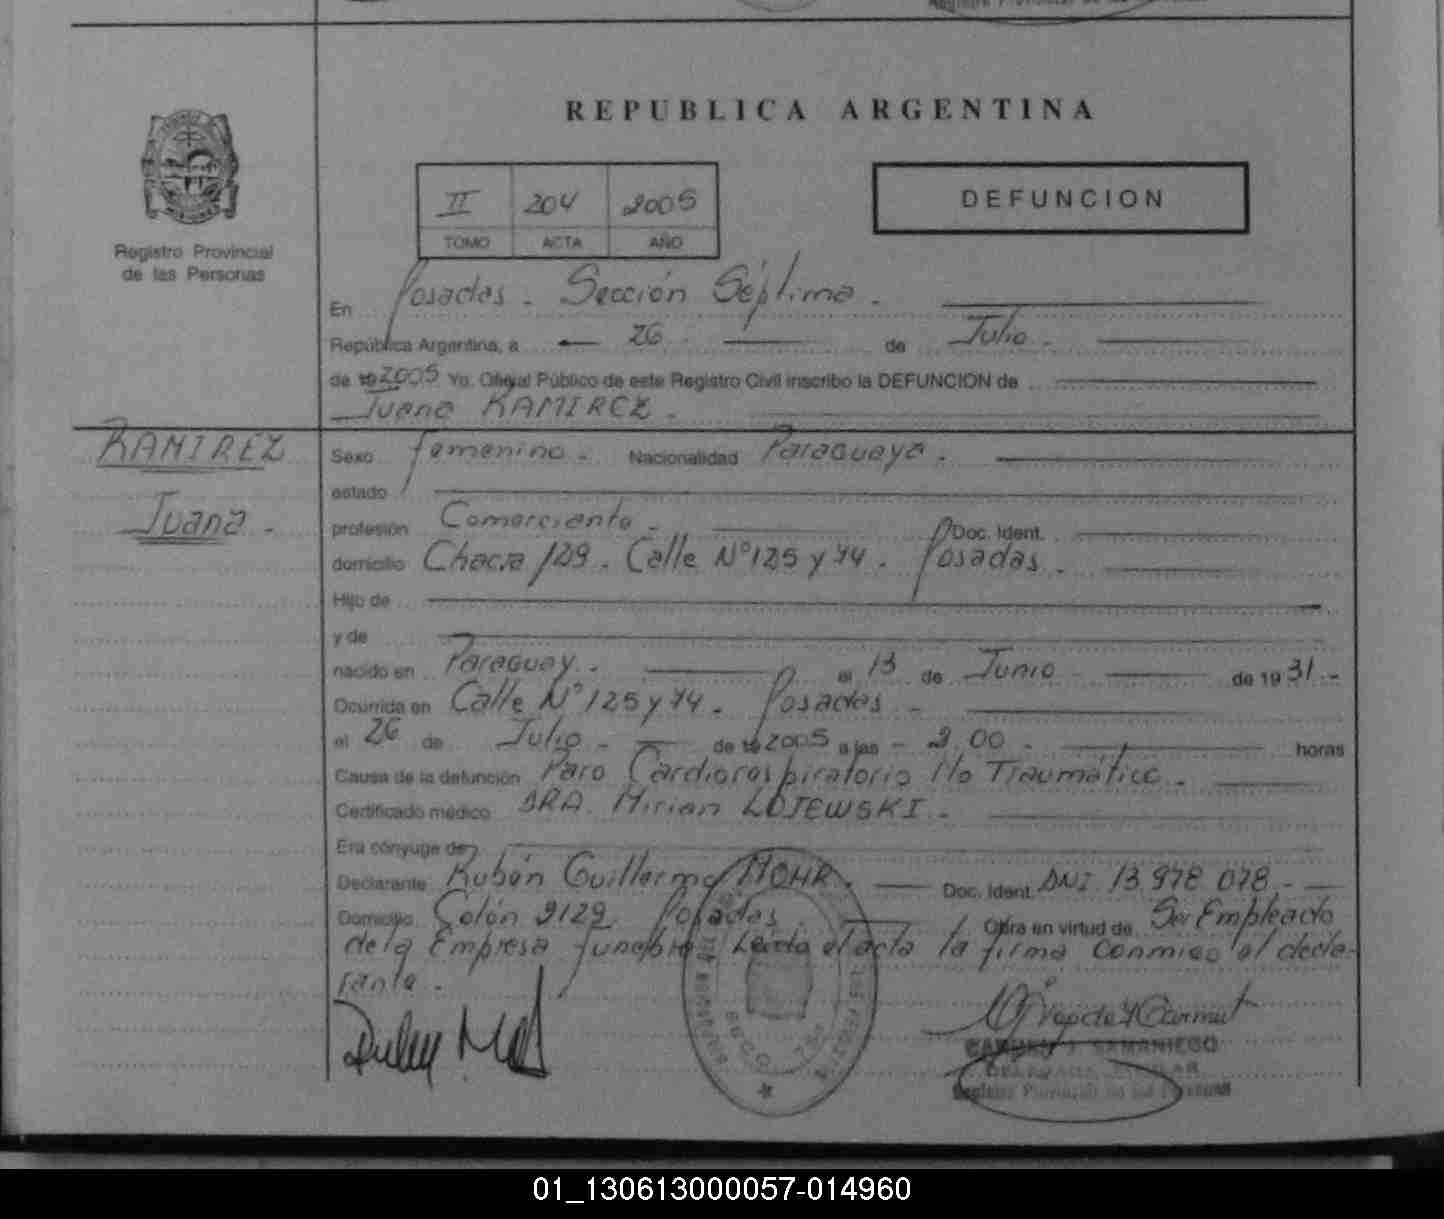 REPUBLICA ARGENTINA
II 204 2005
TOMO ACTA AÑO
DEFUNCION
Registro Provincial
de las Personas
En Posadas - Sección Séptima.
República Argentina, a 26 de Julio
de 19 2005 Yo, Oficial Público de este Registro Civil inscribo la DEFUNCION de
Juana RAMIREZ.
RAMIREZ
Juana.
Sexo femenino. Nacionalidad Paraguaya.
estado
profesión Comerciante Doc. Ident.
domicilio Chacra 129. Calle Nº 125 y 74. Posadas.
Hijo de
y de
nacido en Paraguay. el 13 de Junio de 19 31.
Ocurrida en Calle Nº 125 y 74. Posadas
el 26 de Julio de 19 2005 a las 2,00 horas
Causa de la defunción Paro Cardiorespiratorio No Traumático.
Certificado médico DRA. Mirian LOJEWSKI.
Era cónyuge de
Declarante Rubén Guillermo MOHR. Doc. Ident. DNI. 13.978.078.
Domicilio Colón 2129. Posadas Obra en virtud de Ser Empleado
de la Empresa funebre Leida el acta la firma conmigo el decla-
rante.
CARMEN J. SAMANIEGO
Registro Provincial de las Personas
01_130613000057-014960